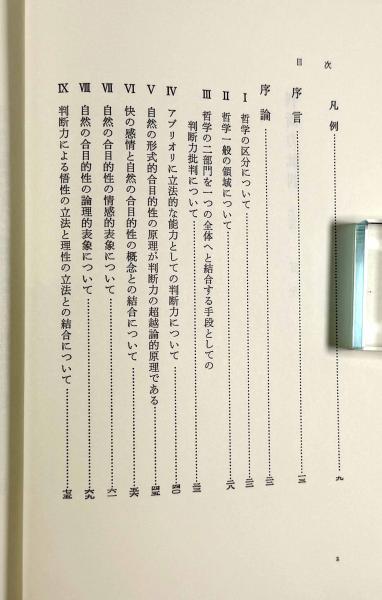 目次
凡例……九
序言……一三
序論……二三
Ⅰ 哲学の区分について……二三
Ⅱ 哲学一般の領域について……二八
Ⅲ 哲学の二部門を一つの全体へと結合する手段としての
判断力批判について……三三
Ⅳ アプリオリに立法的な能力としての判断力について……四〇
Ⅴ 自然の形式的合目的性の原理が判断力の超越論的原理である……四五
Ⅵ 快の感情と自然の合目的性の概念との結合について……五六
Ⅶ 自然の合目的性の情感的表象について……六一
Ⅷ 自然の合目的性の論理的表象について……六九
Ⅸ 判断力による悟性の立法と理性の立法との結合について……七五